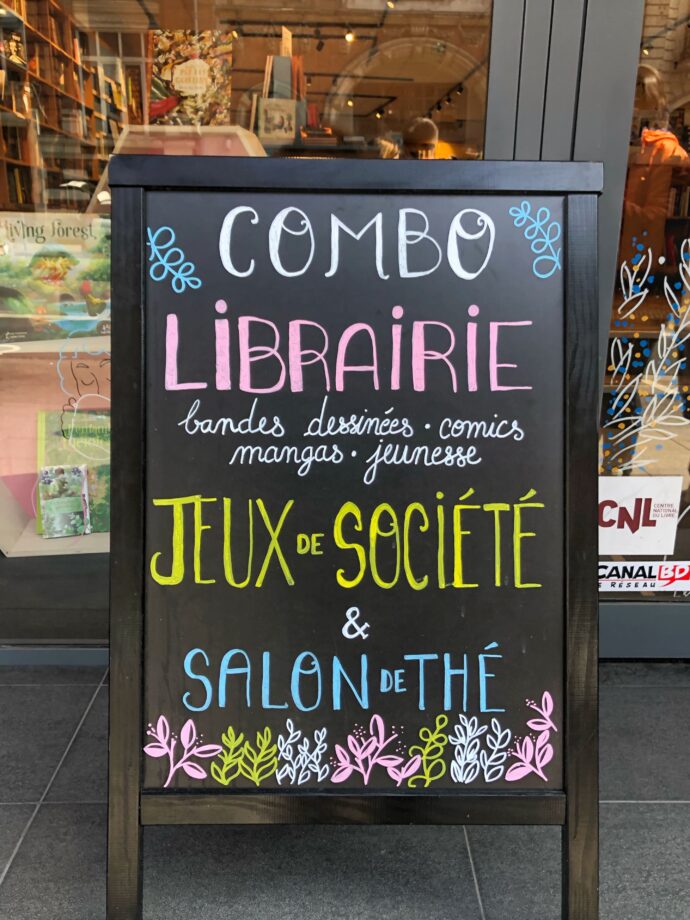 COMBO
LIBRAIRIE
bandes dessinées · comics
mangas · jeunesse
JEUX DE SOCIÉTÉ
&
SALON DE THÉ
living forest
CNL
CENTRE
NATIONAL
DU LIVRE
CANAL BD
LE RÉSEAU